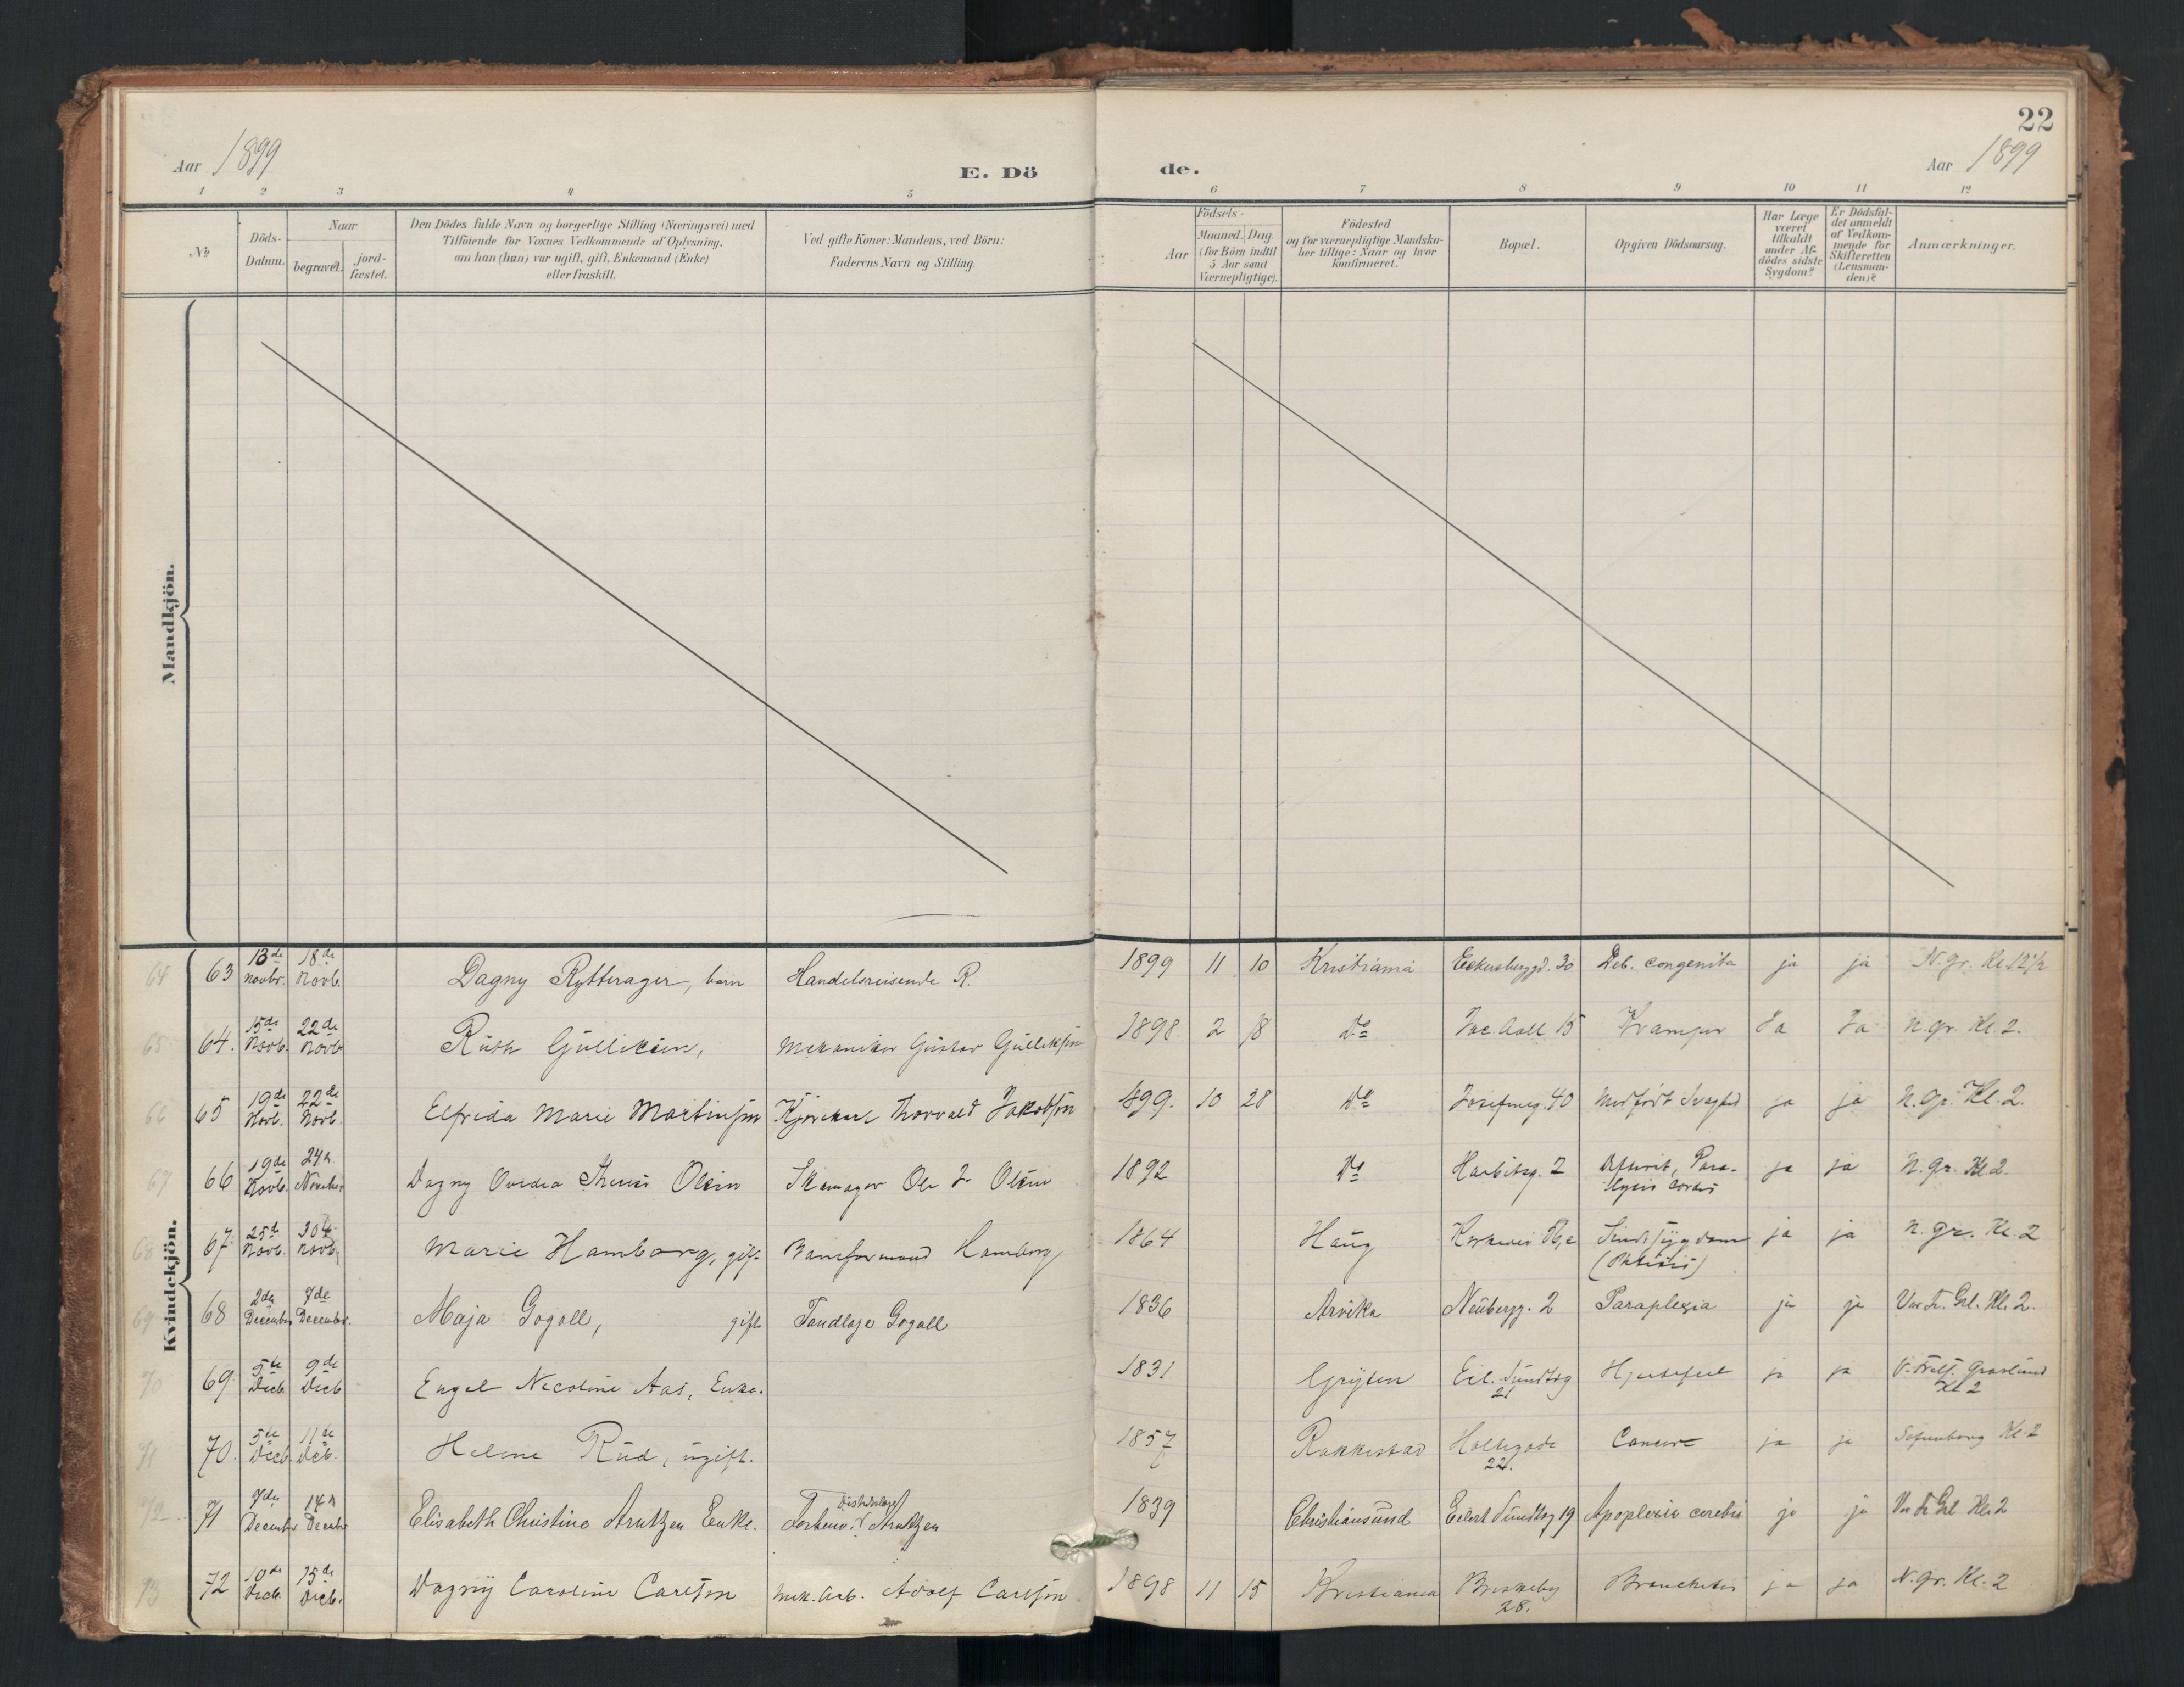 22
Aar 1899
E. Döde.
Aar 1899
1 2 3 4 5 6 7 8 9 10 11 12
No
Döds-Datum.
Naar
begravet.
jord-fæstet.
Den Dödes fulde Navn og borgerlige Stilling (Næringsvei) med
Tilföiende for Voxnes Vedkommende af Oplysning,
om han (hun) var ugift, gift, Enkemand (Enke)
eller fraskilt.
Ved gifte Koner: Mandens, ved Börn:
Faderens Navn og Stilling.
Födsels-
Aar
Maaned. Dag.
(for Börn indtil
5 Aar samt
Værnepligtige).
Födested
og for værnepligtige Mandska-
ber tillige: Naar og hvor
konfirmeret.
Bopæl.
Opgiven Dödsaarsag.
Har Læge
været
tilkaldt
under Af-
dödes sidste
Sygdom?
Er Dödsfal-
det anmeldt
af Vedkom-
mende for
Skifteretten
(Lensman-
den)?
Anmærkninger.
Mandkjön.
Kvindekjön.
64 63 13de Novbr. 18de Novb. Dagny Rytterager, barn Handelsreisende R. 1899 11 10 Kristiania Eckersbergd. 30 Deb. congenita ja ja N. gr. Kl. 12 1/2
65 64. 15de Novb. 22de Novb Ruth Gulliksen, Mekaniker Gustav Gulliksen 1898 2 18 Do Jac. Aall 15 Kramper Ja Ja N. gr. Kl. 2.
66 65 19de Novb. 22de Novb. Elfrida Marie Martinsen Kjörekarl Thorvald Jakobsen 1899. 10 28 Do Josefineg. 40 Medfödt Svaghed ja ja N. gr. Kl. 2.
67 66 19de Novb. 24de November Dagny Ovedia Olsen Skomager Ole J. Olsen 1892 Do Harbitzg. 2 Para-
lysis cordis ja ja N. gr. Kl. 2.
68 67. 25de Novb. 30te Novb. Marie Hamborg, gift Baneformand Hamborg 1864 Haug Sindssygdom
(Phtisis) ja ja N. gr. Kl. 2
69 68 2den December 7de December. Maja Gogall, gift Tandlæge Gogall 1836 Arvika Neubergg. 2 Paraplegia ja ja Vor Fr. Grl. Kl. 2.
70 69 5te Decb. 9de Decb Engel Nicoline Aas, Enke. 1831 Gryten Eil. Sundtsg
21 Hjertefeil ja ja V. Frels. Gravlund
Kl 2
71 70. 5te Decb. 11te Decb. Helene Rud, ugift. 1857 Rakkestad Holtegade
22. Cancer ja ja Sofienberg Kl. 2
72 71 7de December 14de Decmbr Elisabeth Christine Arntzen Enke. Forhenv. Distriktslæge Arntzen 1839 Christiansund Eilert Sundtsg 19 Apoplexia cerebri ja ja Vor Fr Grl Kl. 2
73 72 10de Decb. 15de Decb. Dagny Caroline Carlsen Mek. Arb. Adolf Carlsen 1898 11 15 Kristiania Briskeby
28. Bronchitis ja ja N. gr. Kl. 2